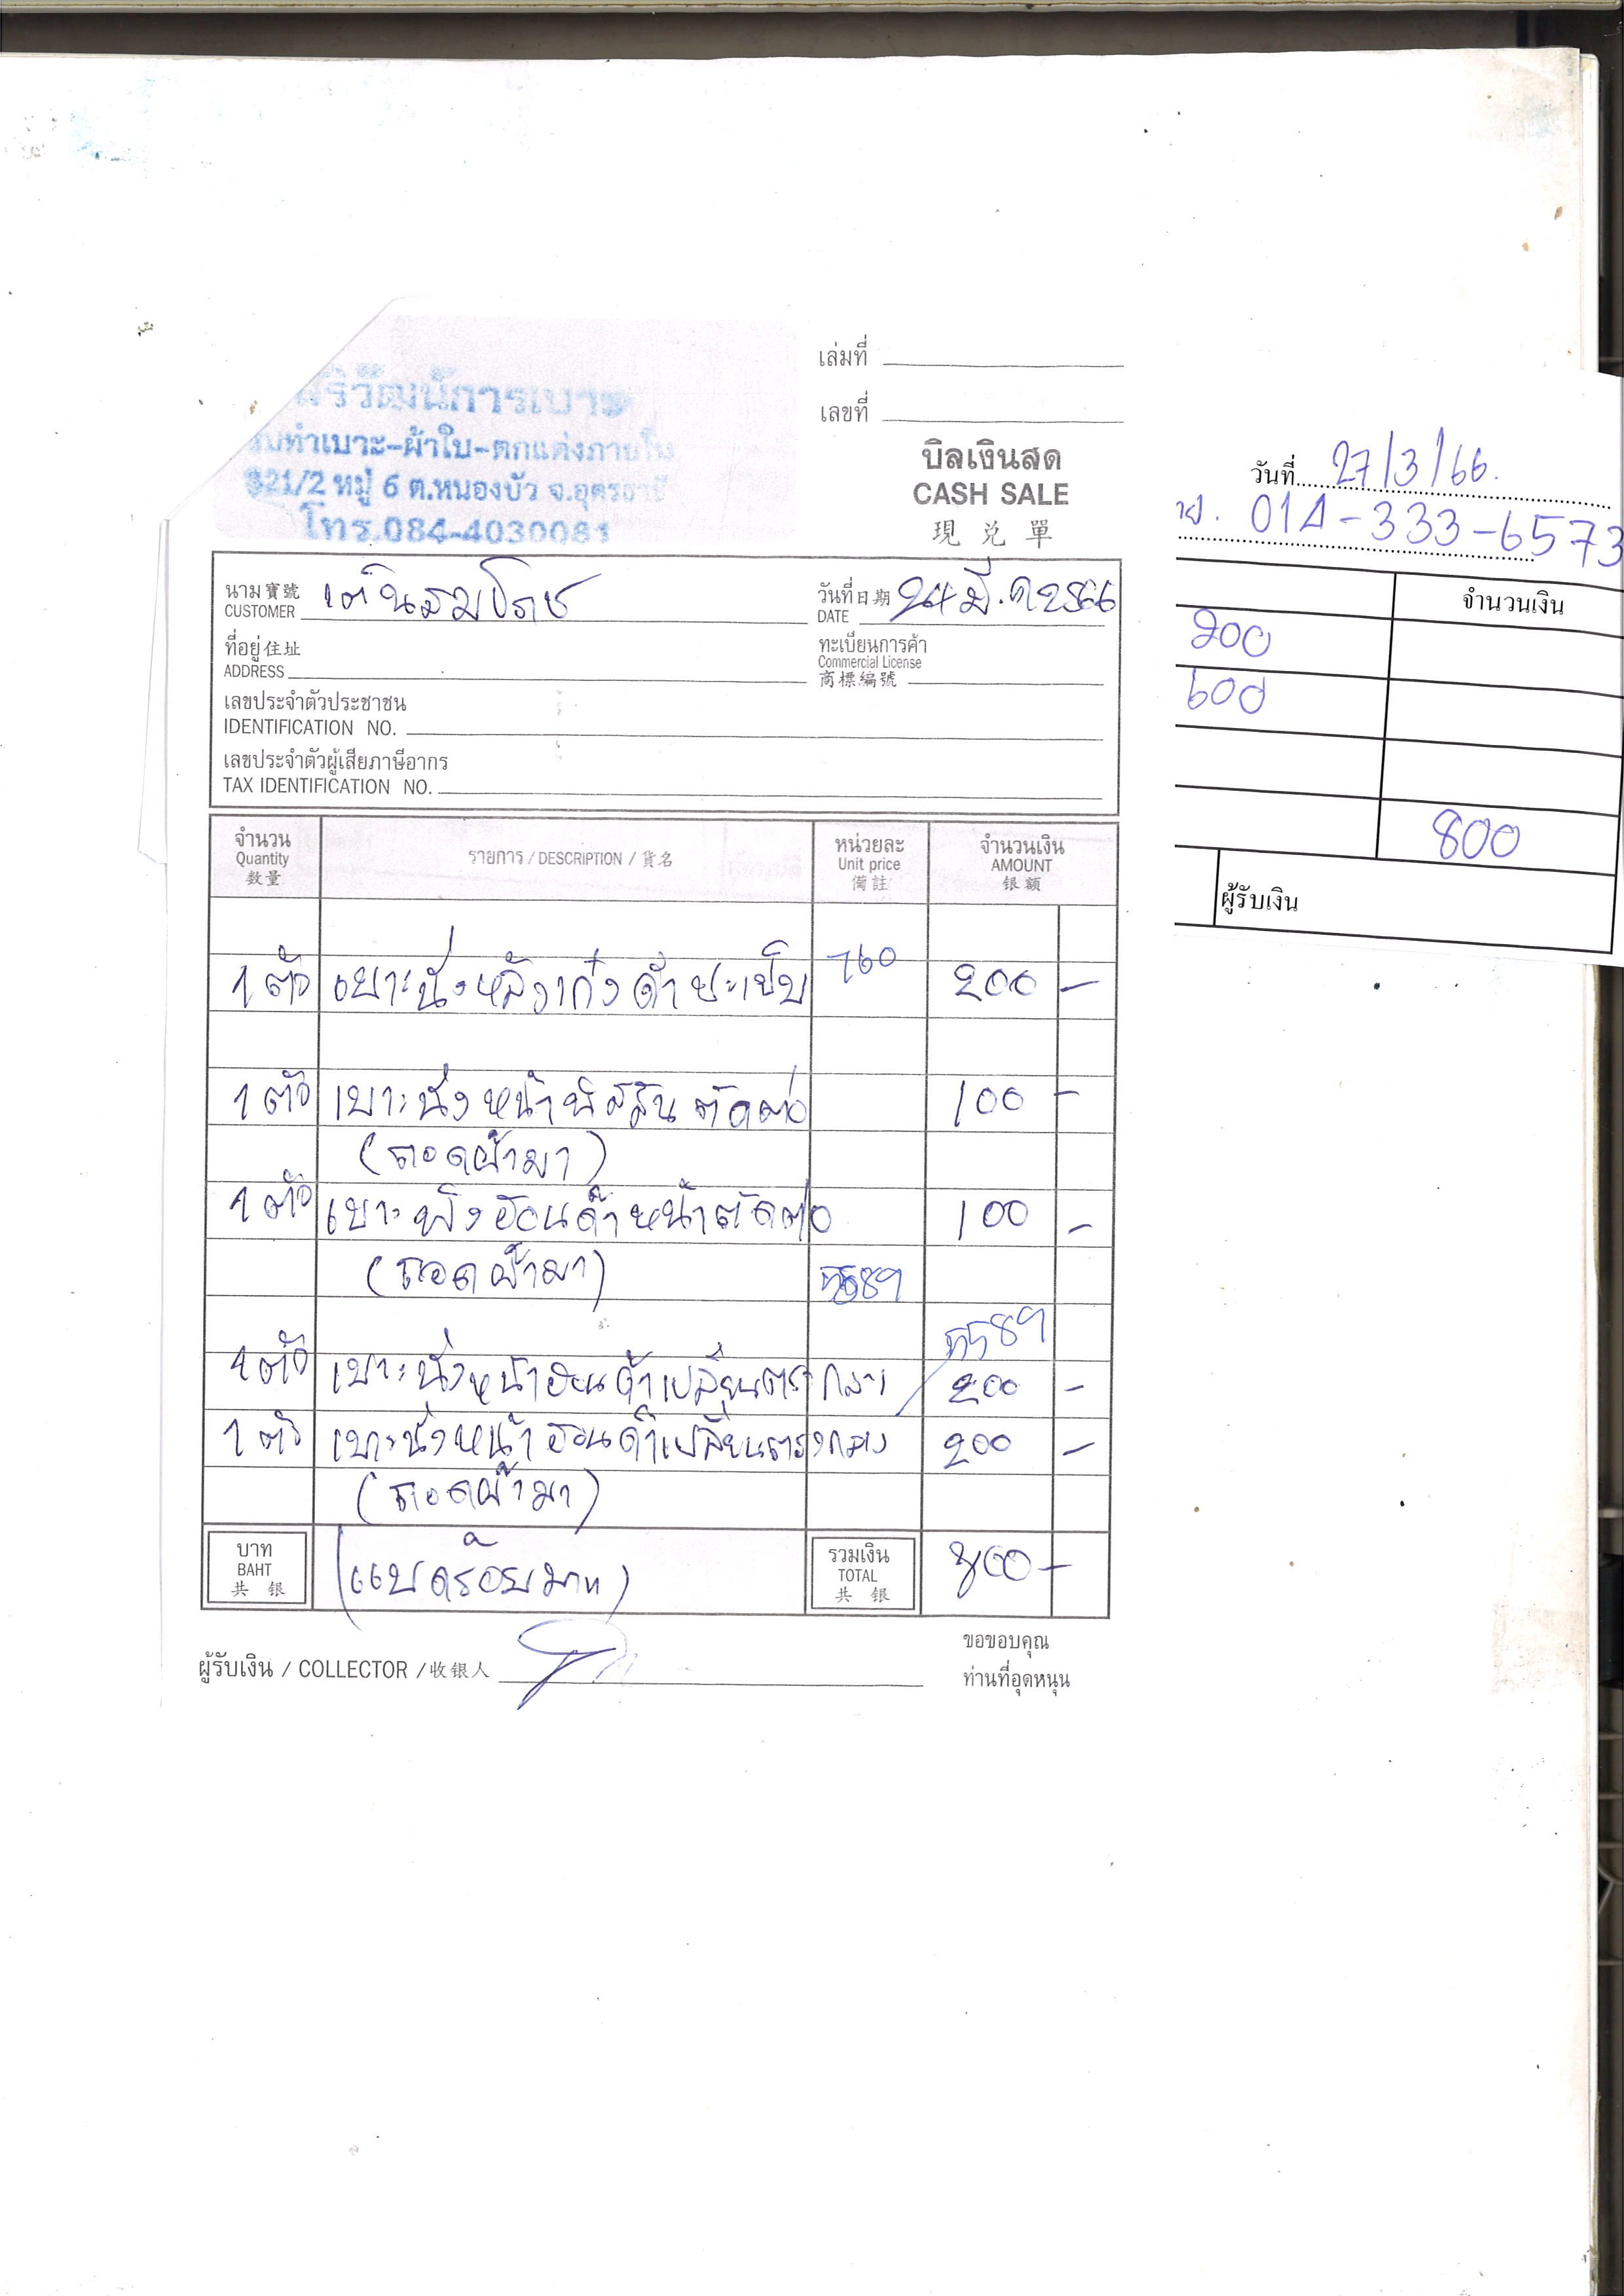 ศิริวัฒน์การเบาะ
รับทำเบาะ-ผ้าใบ-ตกแต่งภายใน
321/2 หมู่ 6 ต.หนองบัว จ.อุดรธานี
โทร.084-4030081
เล่มที่
เลขที่
บิลเงินสด
CASH SALE
現兑單
นาม寶號
CUSTOMER
วันที่日期 24 มี.ค 2566
DATE
ที่อยู่住址
ADDRESS
ทะเบียนการค้า
Commercial License
商標編號
เลขประจำตัวประชาชน
IDENTIFICATION NO.
เลขประจำตัวผู้เสียภาษีอากร
TAX IDENTIFICATION NO.
จำนวน Quantity 数量 รายการ / DESCRIPTION / 貨名 หน่วยละ Unit price 備註 จำนวนเงิน AMOUNT 银額
760
1 ตัว เบาะนั่งหลังเก๋งดำปะเย็บ 200 -
1 ตัว เบาะนั่งหน้า ตัดต่อ 100 -
(ถอดผ้ามา)
1 ตัว เบาะพิงฮอนด้าหน้าตัดต่อ 100 -
(ถอดผ้ามา) 5589
5589
1 ตัว เบาะนั่งหน้าฮอนด้าเปลี่ยนตรงกลาง 200 -
1 ตัว เบาะนั่งหน้าฮอนด้าเปลี่ยนตรงกลาง 200 -
(ถอดผ้ามา)
บาท BAHT 共银 (แปดร้อยบาท) รวมเงิน TOTAL 共银 800 -
ผู้รับเงิน / COLLECTOR / 收银人
ขอขอบคุณ
ท่านที่อุดหนุน
วันที่ 27/3/66.
014-333-6573
จำนวนเงิน
200
600
800
ผู้รับเงิน